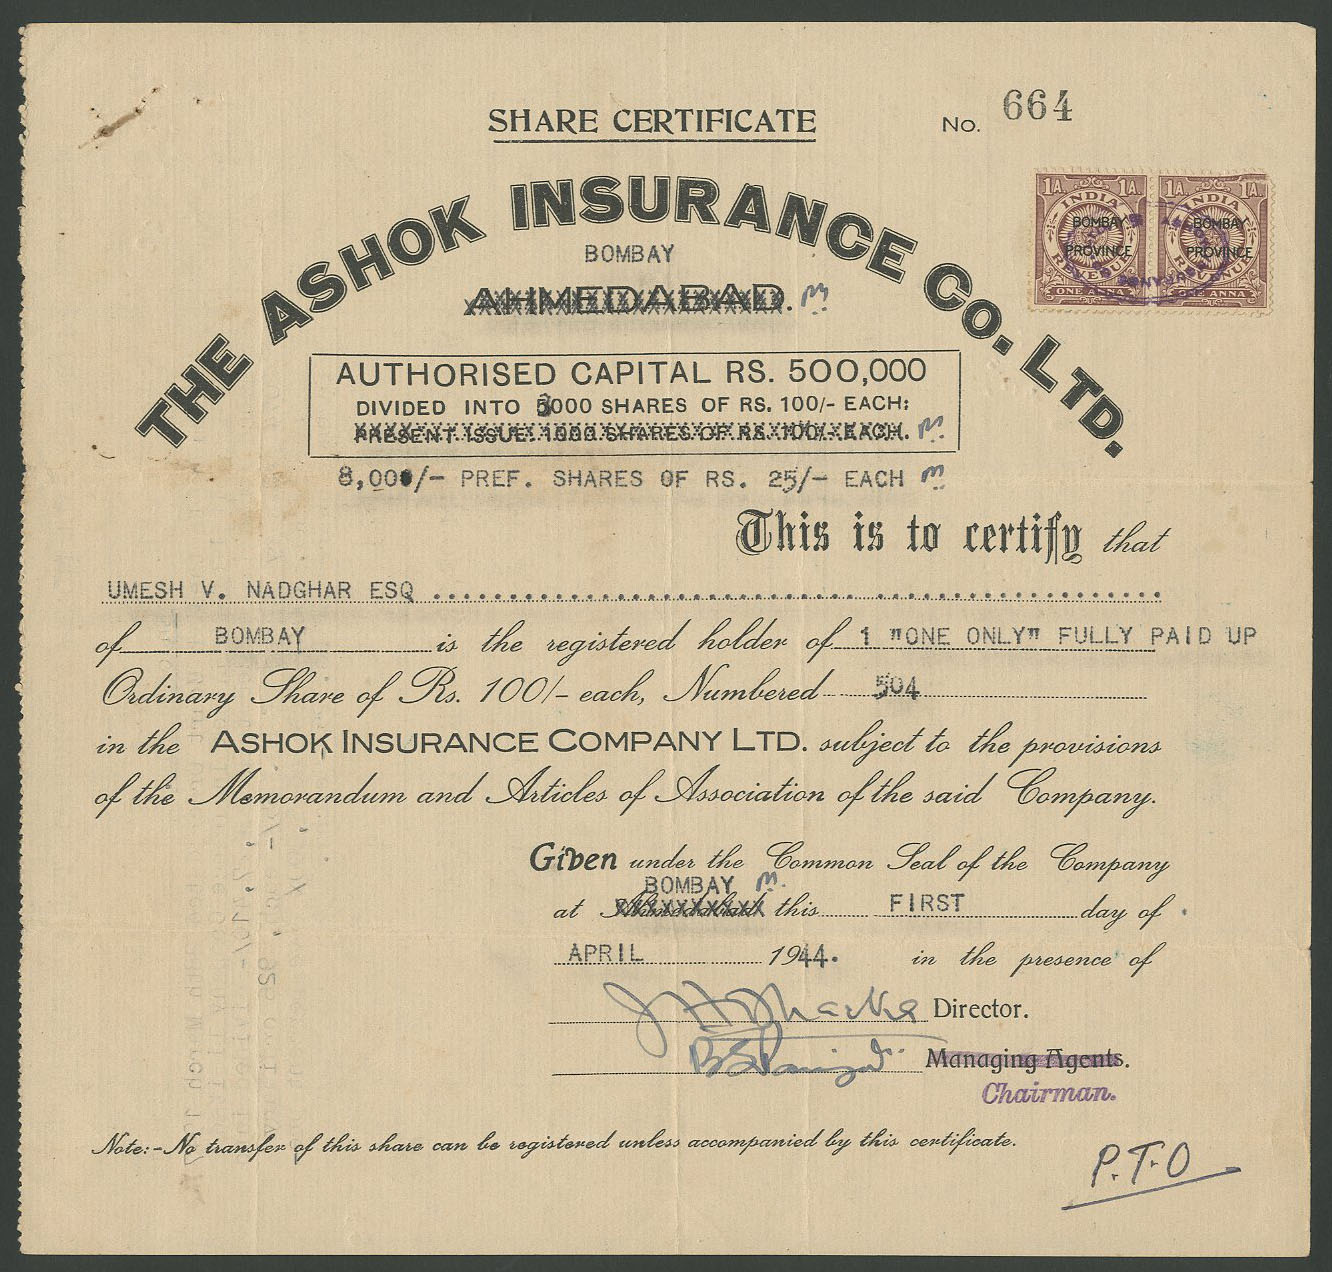 SHARE CERTIFICATE
No. 664
THE ASHOK INSURANCE CO. LTD.
BOMBAY
AHMEDABAD.
1A. 1A. 1A. 1A.
INDIA INDIA
BOMBAY BOMBAY
PROVINCE PROVINCE
REVENUE REVENUE
ONE ANNA ONE ANNA
AUTHORISED CAPITAL RS. 500,000
DIVIDED INTO 3000 SHARES OF RS. 100/- EACH:
PRESENT ISSUE: 1000 SHARES OF RS. 100/- EACH.
8,000/- PREF. SHARES OF RS. 25/- EACH
This is to certify that
UMESH V. NADGHAR ESQ
of BOMBAY is the registered holder of 1 "ONE ONLY" FULLY PAID UP
Ordinary Share of Rs. 100/- each, Numbered 504
in the ASHOK INSURANCE COMPANY LTD. subject to the provisions
of the Memorandum and Articles of Association of the said Company.
Given under the Common Seal of the Company
BOMBAY
at Ahmedabad this FIRST day of
APRIL 1944. in the presence of
Director.
Managing Agents.
Chairman.
Note:- No transfer of this share can be registered unless accompanied by this certificate.
P.T.O